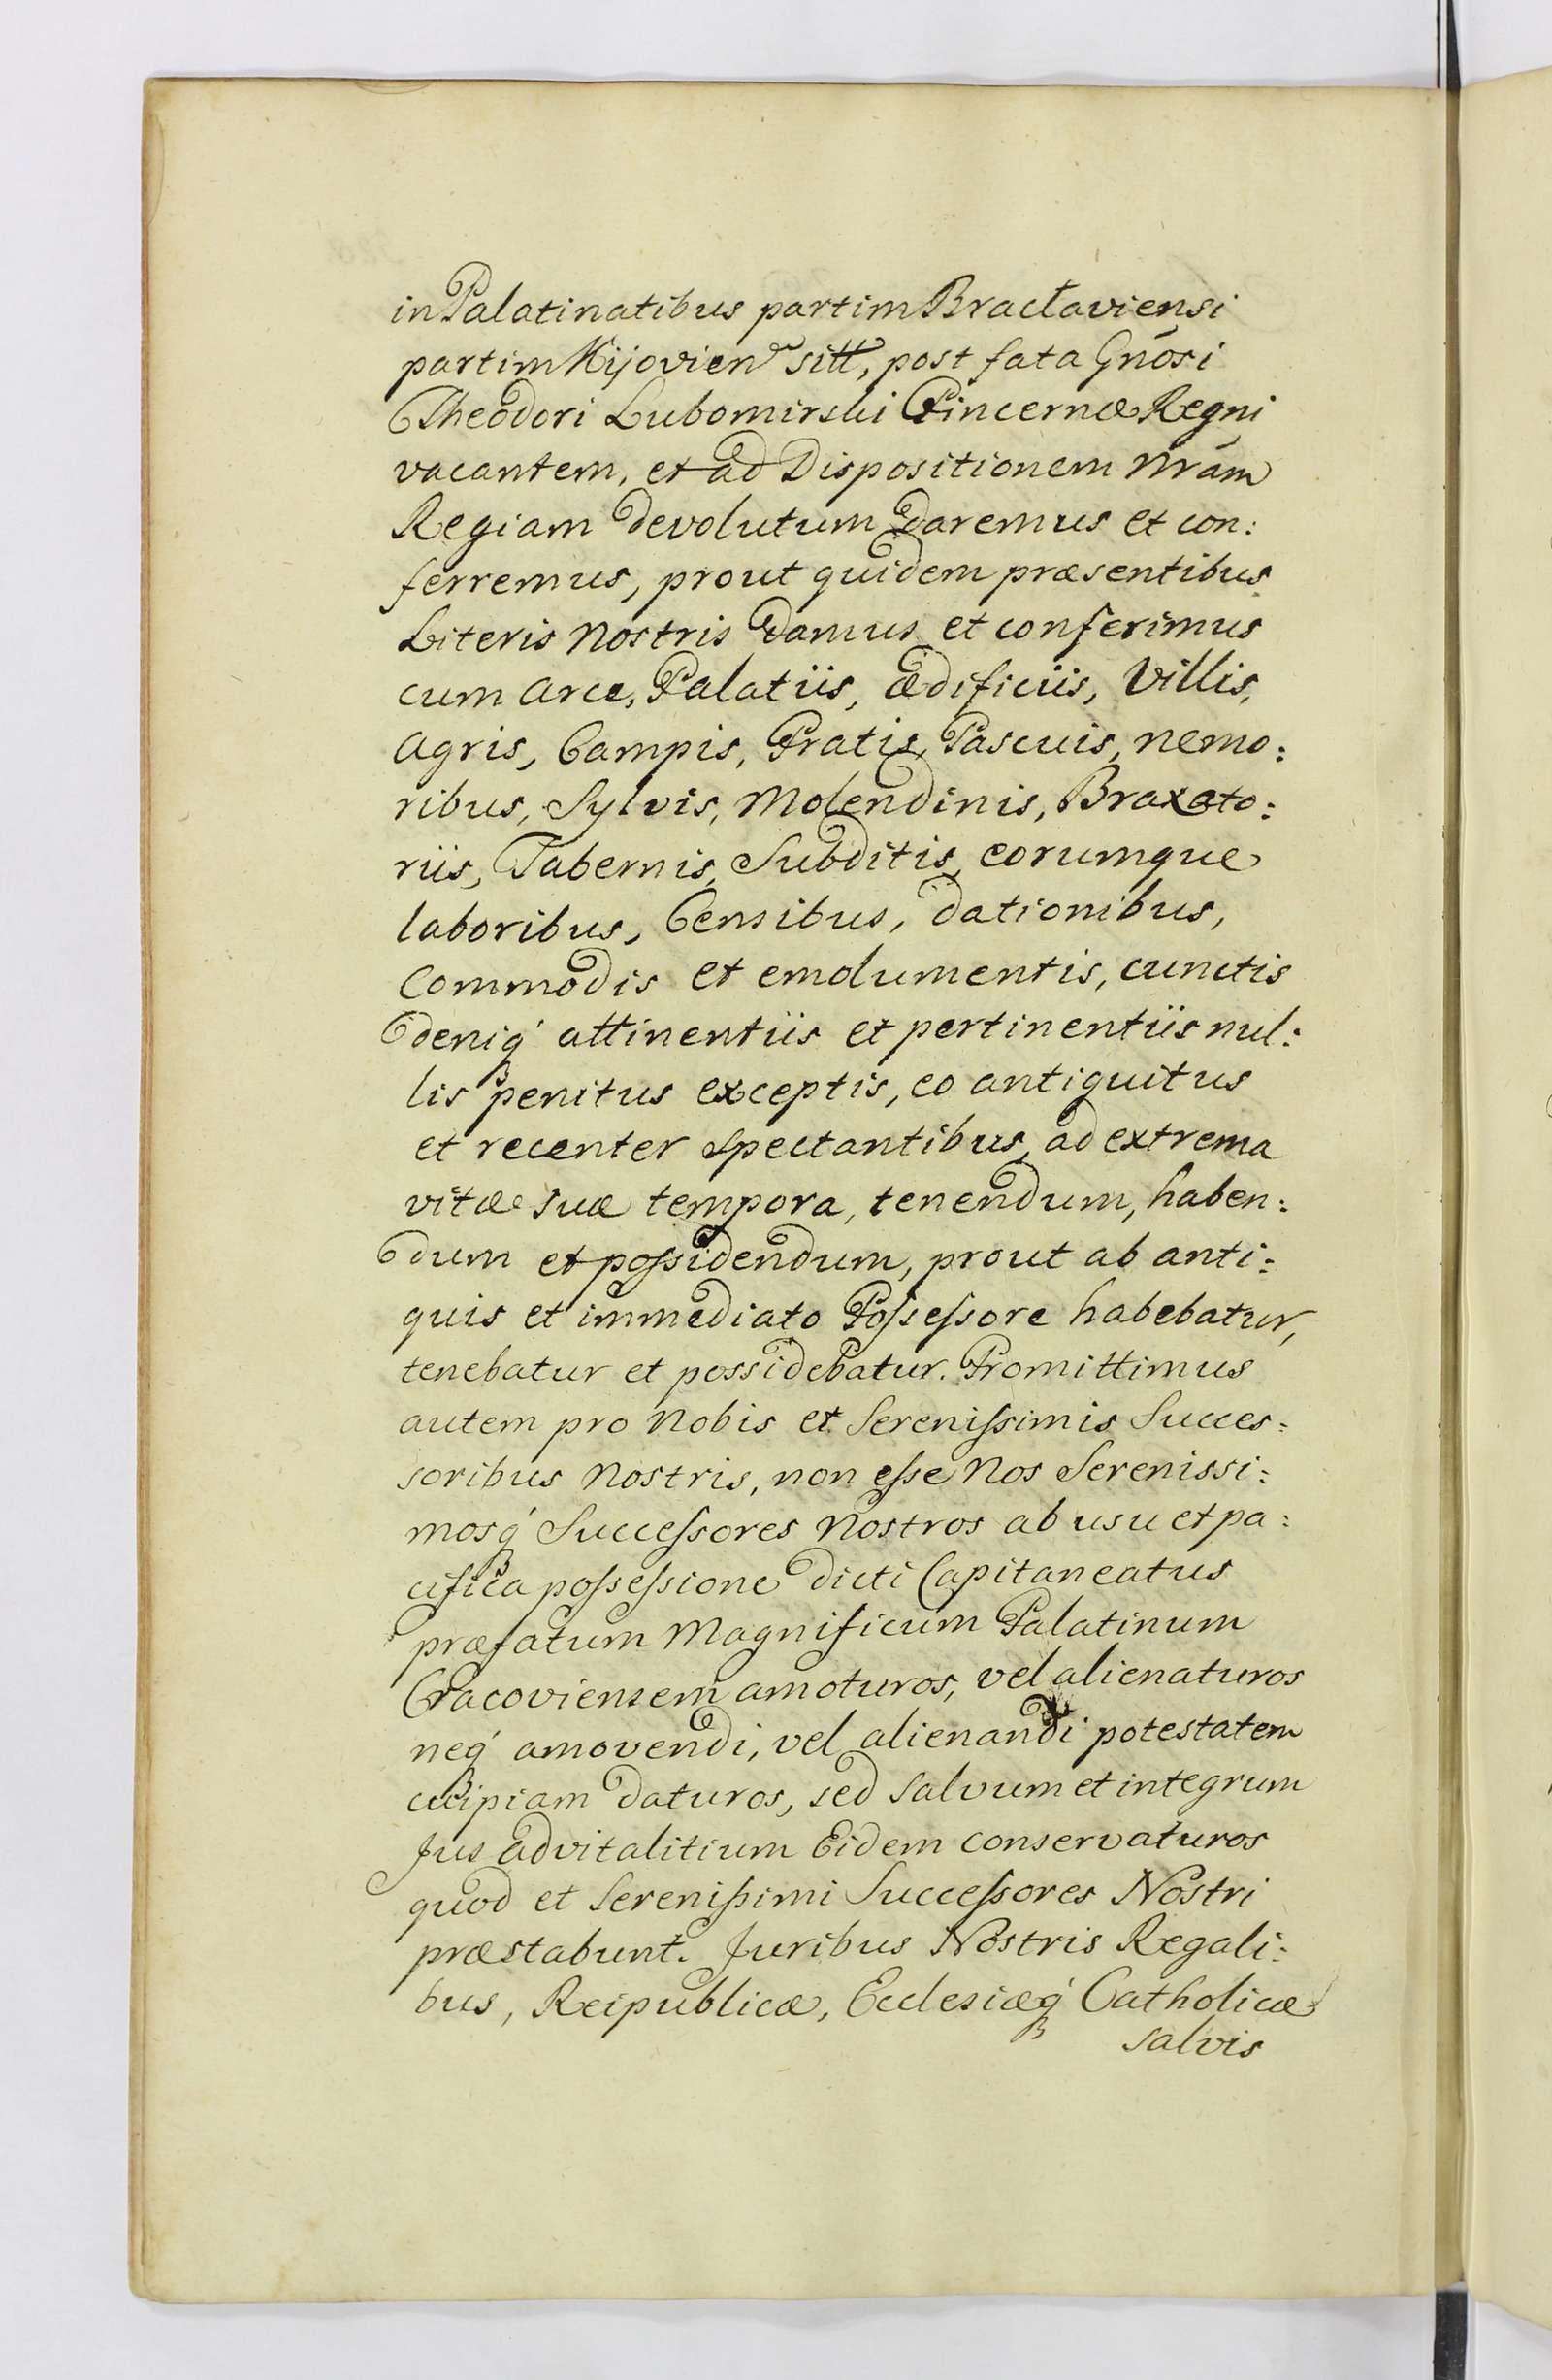 in Palatinatibus partim Bracłaviensi
partim Kijovien sitt, post fata Gnosi
Theodori Lubomirski Pincernæ Regni
vacantem, et ad Dispositionem Nram
Regiam devolutum daremus et con:
ferremus, prout quidem præsentibus
Literis Nostris damus et conferimus
cum Arce, Palatiis, ædificiis, Villis,
Agris, Campis, Pratis, Pascuis, nemo:
ribus, Sylvis, Molendinis, Braxato:
riis, Tabernis, Subditis, eorumque
laboribus, Censibus, dationibus,
Commodis et emolumentis, cunctis
deniq́ attinentiis et pertinentiis nul:
lis penitus exceptis, eo antiquitus
et recenter spectantibus, ad extrema
vitæ suæ tempora, tenendum, haben:
dum et poſsidendum, prout ab anti:
quis et immediato Poſseſsore habebatur,
tenebatur et possidebatur. Promittimus
autem pro Nobis et Sereniſsimis Succes:
soribus Nostris, non eſse Nos Serenissi:
mosq́ Succeſsores Nostros ab usu et pa:
cifica poſseſsione dicti Capitaneatus
præfatum Magnificum Palatinum
Cracoviensem amoturos, vel alienaturos
neq́ amovendi, vel alienandi potestatem
cuipiam daturos, sed salvum et integrum
Jus advitalitium Eidem conservaturos
quod et Sereniſsimi Succeſsores Nostri
præstabunt. Juribus Nostris Regali:
bus, Reipublicæ, Ecclesiæq́ Catholicæ
salvis